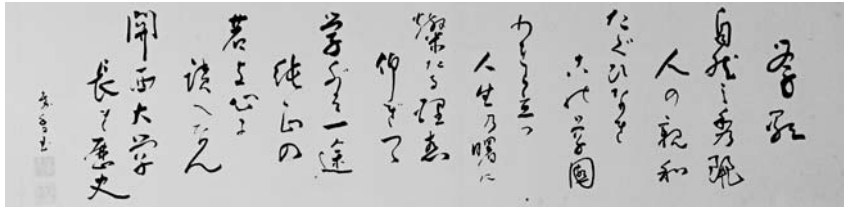 学歌
自然之秀麗
人の親和
たぐひなき
この学園
われら立つ
人生乃曙に
燦たる理想
仰ぎて
一途
純正の
若き心に
讃へなん
関西大学
長き歴史